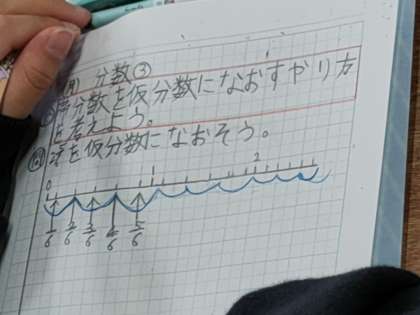 分数③
帯分数を仮分数になおすやり方
を考えよう。
を仮分数になおそう。
0 1 2
1/6 2/6 3/6 4/6 5/6